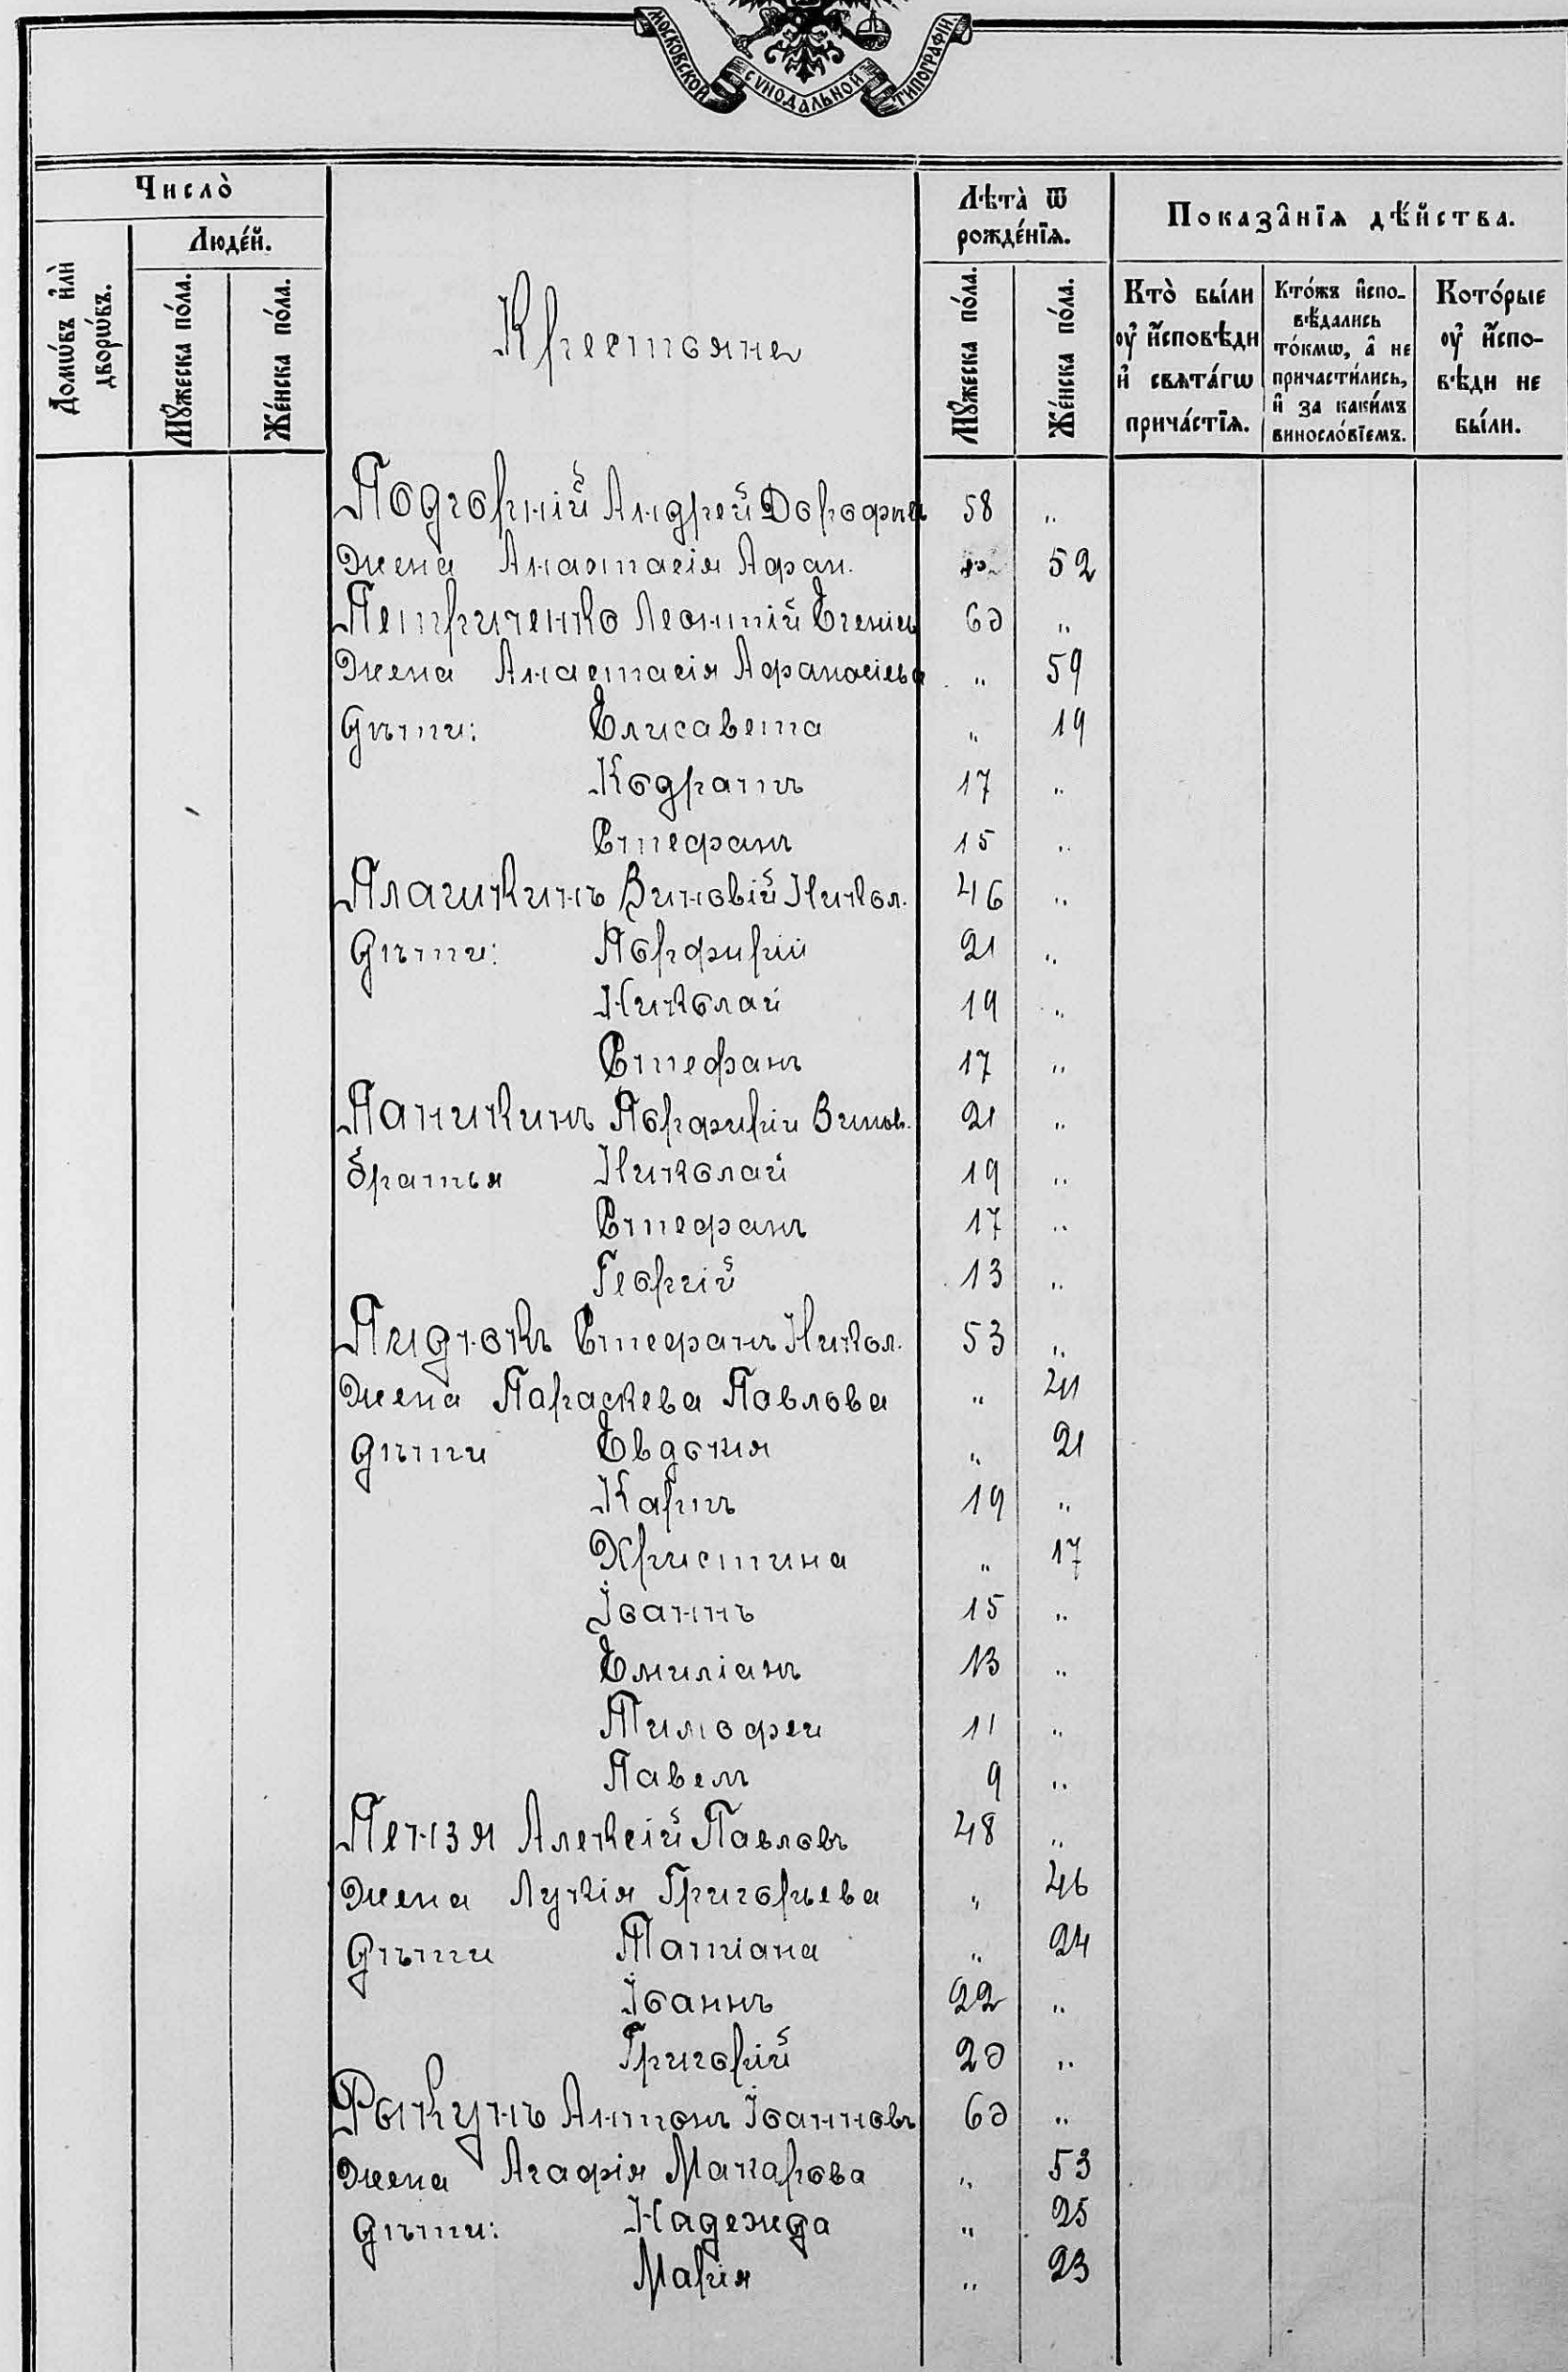 МОСКОВСКОЙ СѴНОДАЛЬНОЙ ТИПОГРАФІИ.
Число̀
Люде́й.
Домѡ́въ и҆лѝ дворѡ́въ.
Мꙋ́жеска по́ла.
Же́нска по́ла.
Крестьяне
Лѣта̀ ѿ рожде́нїѧ.
Мꙋ́жеска по́ла.
Же́нска по́ла.
Показа̑нїѧ дѣ́йства.
Кто̀ бы́ли оу҆ и҆́сповѣди и҆ свѧта́гѡ прича́стїѧ.
Кто́жъ и҆спо-вѣ́дались то́кмѡ, а҆ не причасти́лись, и҆ за каки́мъ винословїемъ.
Кото́рые оу҆ и҆́спо-вѣди не бы́ли.
Подгорній Андрей Дорофѣев 58 „
жена Анастасія Афан. 52
Петриченко Леонтій 60 „
Жена Анастасія Афанасіева „ 59
Дѣти: Елисавета „ 19
Кодратъ 17 „
Стефанъ 15 „
Плашкинъ Зиновій Никол. 46 „
Дѣти: Порфирій 21 „
Николай 19 „
Стефанъ 17 „
Порфирій Зинов. 21 „
братья Николай 19 „
Стефанъ 17 „
Георгій 13 „
Пиднокъ Стефанъ Никол. 53 „
Жена Параскева Павлова „ 41
Дѣти Евдокия „ 21
Карпъ 19 „
Христина „ 17
Іоаннъ 15 „
Емиліанъ 13 „
Тимофей 11 „
Павелъ 9 „
Пензя Алексій Павловъ 48 „
Жена Лукія Григорьева „ 46
Дѣти Татіана „ 24
Іоаннъ 22 „
Григорій 20 „
Рыкунъ Антонъ Іоанновъ 60 „
Жена Агафія Макарова „ 53
Дѣти: Надежда „ 25
Марія „ 23